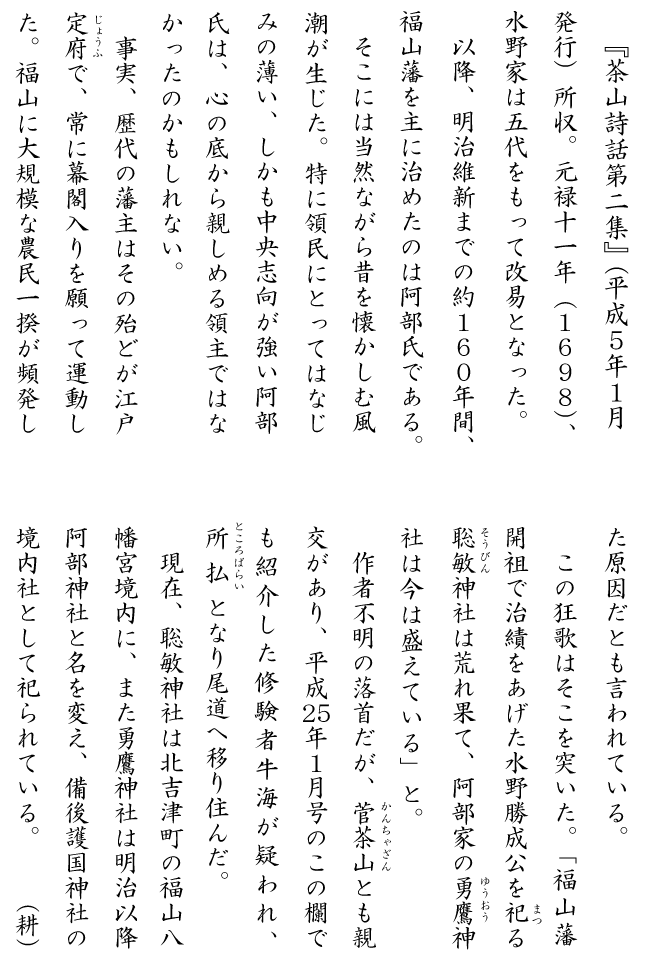 『茶山詩話第二集』（平成５年１月
発行）所収。元禄十一年（１６９８）、
水野家は五代をもって改易となった。
以降、明治維新までの約１６０年間、
福山藩を主に治めたのは阿部氏である。
そこには当然ながら昔を懐かしむ風
潮が生じた。特に領民にとってはなじ
みの薄い、しかも中央志向が強い阿部
氏は、心の底から親しめる領主ではな
かったのかもしれない。
事実、歴代の藩主はその殆どが江戸
定府で、常に幕閣入りを願って運動し
じょうふ
た。福山に大規模な農民一揆が頻発し
た原因だとも言われている。
この狂歌はそこを突いた。「福山藩
開祖で治績をあげた水野勝成公を祀る
まつ
聡敏神社は荒れ果て、阿部家の勇鷹神
そうびん
ゆうおう
社は今は盛えている」と。
作者不明の落首だが、菅茶山とも親
かんちゃざん
交があり、平成25年１月号のこの欄で
も紹介した修験者牛海が疑われ、
所払となり尾道へ移り住んだ。
ところばらい
現在、聡敏神社は北吉津町の福山八
幡宮境内に、また勇鷹神社は明治以降
阿部神社と名を変え、備後護国神社の
境内社として祀られている。（耕）